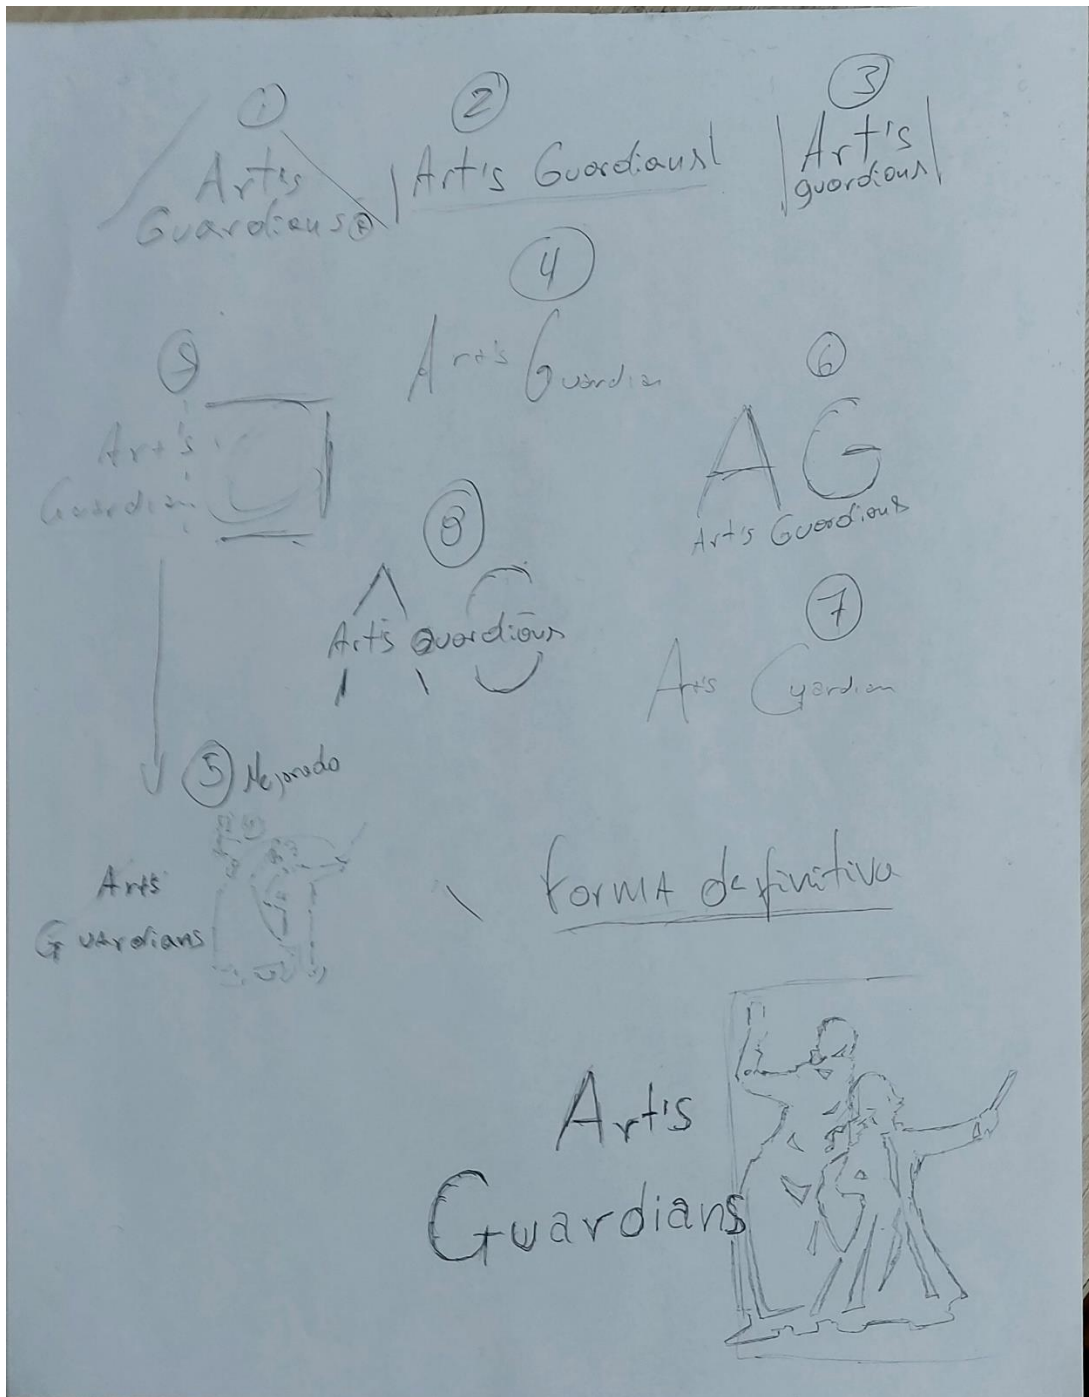 1
Art's
Guardians R
2
Art's Guardians
3
Art's
guardians
4
Art's Guardian
5
Art's
Guardian
6
AG
Art's Guardians
8
Art's Guardians
7
Art's Guardian
5 Mejorado
Art's
Guardians
Forma definitiva
Art's
Guardians